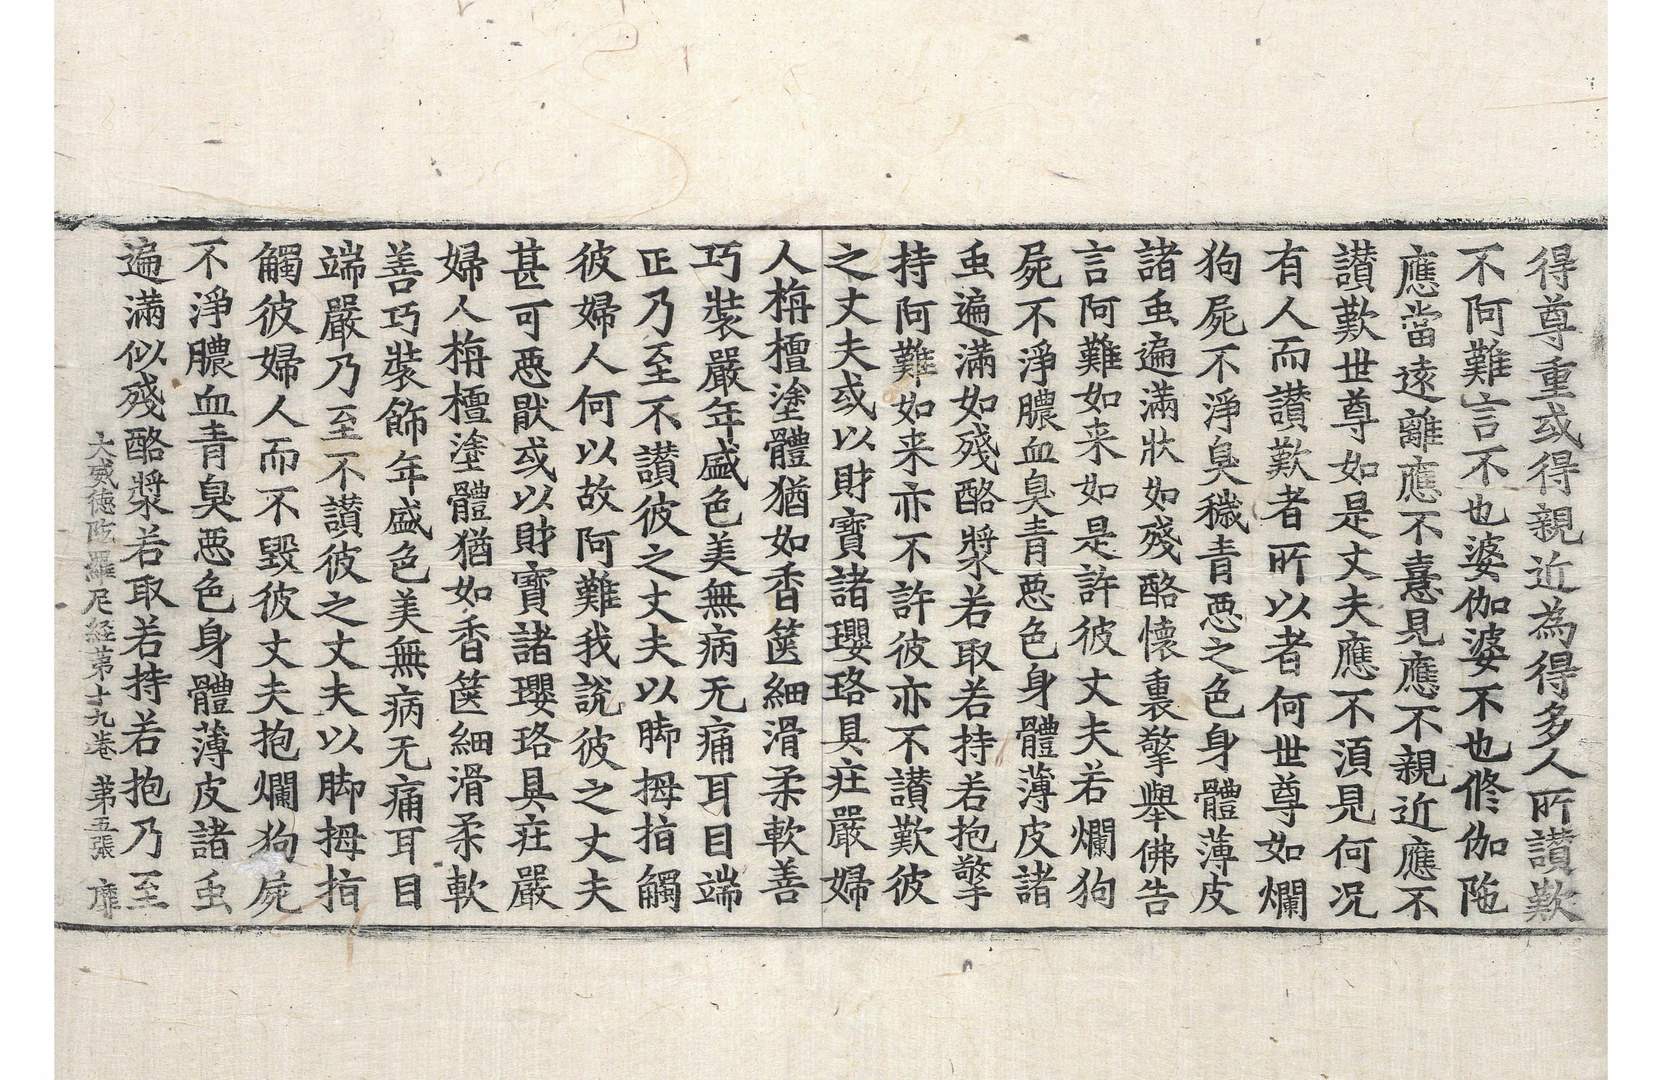 得尊重或得親近為得多人所讃歎
不阿難言不也婆伽婆不也脩伽陁
應當遠離應不憙見應不親近應不
讃歎世尊如是丈夫應不湏見何况
有人而讃歎者所以者何世尊如爛
狗屍不淨臭穢青惡之色身體薄皮
諸䖝遍滿狀如殘酪懷裏擎舉佛告
言阿難如来如是許彼丈夫若爛狗
屍不淨膿血臭青惡色身體薄皮諸
䖝遍滿如殘酪漿若取若持若抱擎
持阿難如来亦不許彼亦不讃歎彼
之丈夫或以財寶諸瓔珞具莊嚴婦
人栴檀塗體猶如香篋細滑柔軟善
巧裝嚴年盛色美無病无痛耳目端
正乃至不讃彼之丈夫以脚拇指觸
彼婦人何以故阿難我說彼之丈夫
甚可惡猒或以財寶諸瓔珞具莊嚴
婦人栴檀塗體猶如香篋細滑柔軟
善巧裝飾年盛色美無病无痛耳目
端嚴乃至不讃彼之丈夫以脚拇指
觸彼婦人而不毀彼丈夫抱爛狗屍
不淨膿血青臭惡色身體薄皮諸䖝
遍滿似殘酪漿若取若持若抱乃至
大威德陁羅尼経第十九卷 第五張 靡